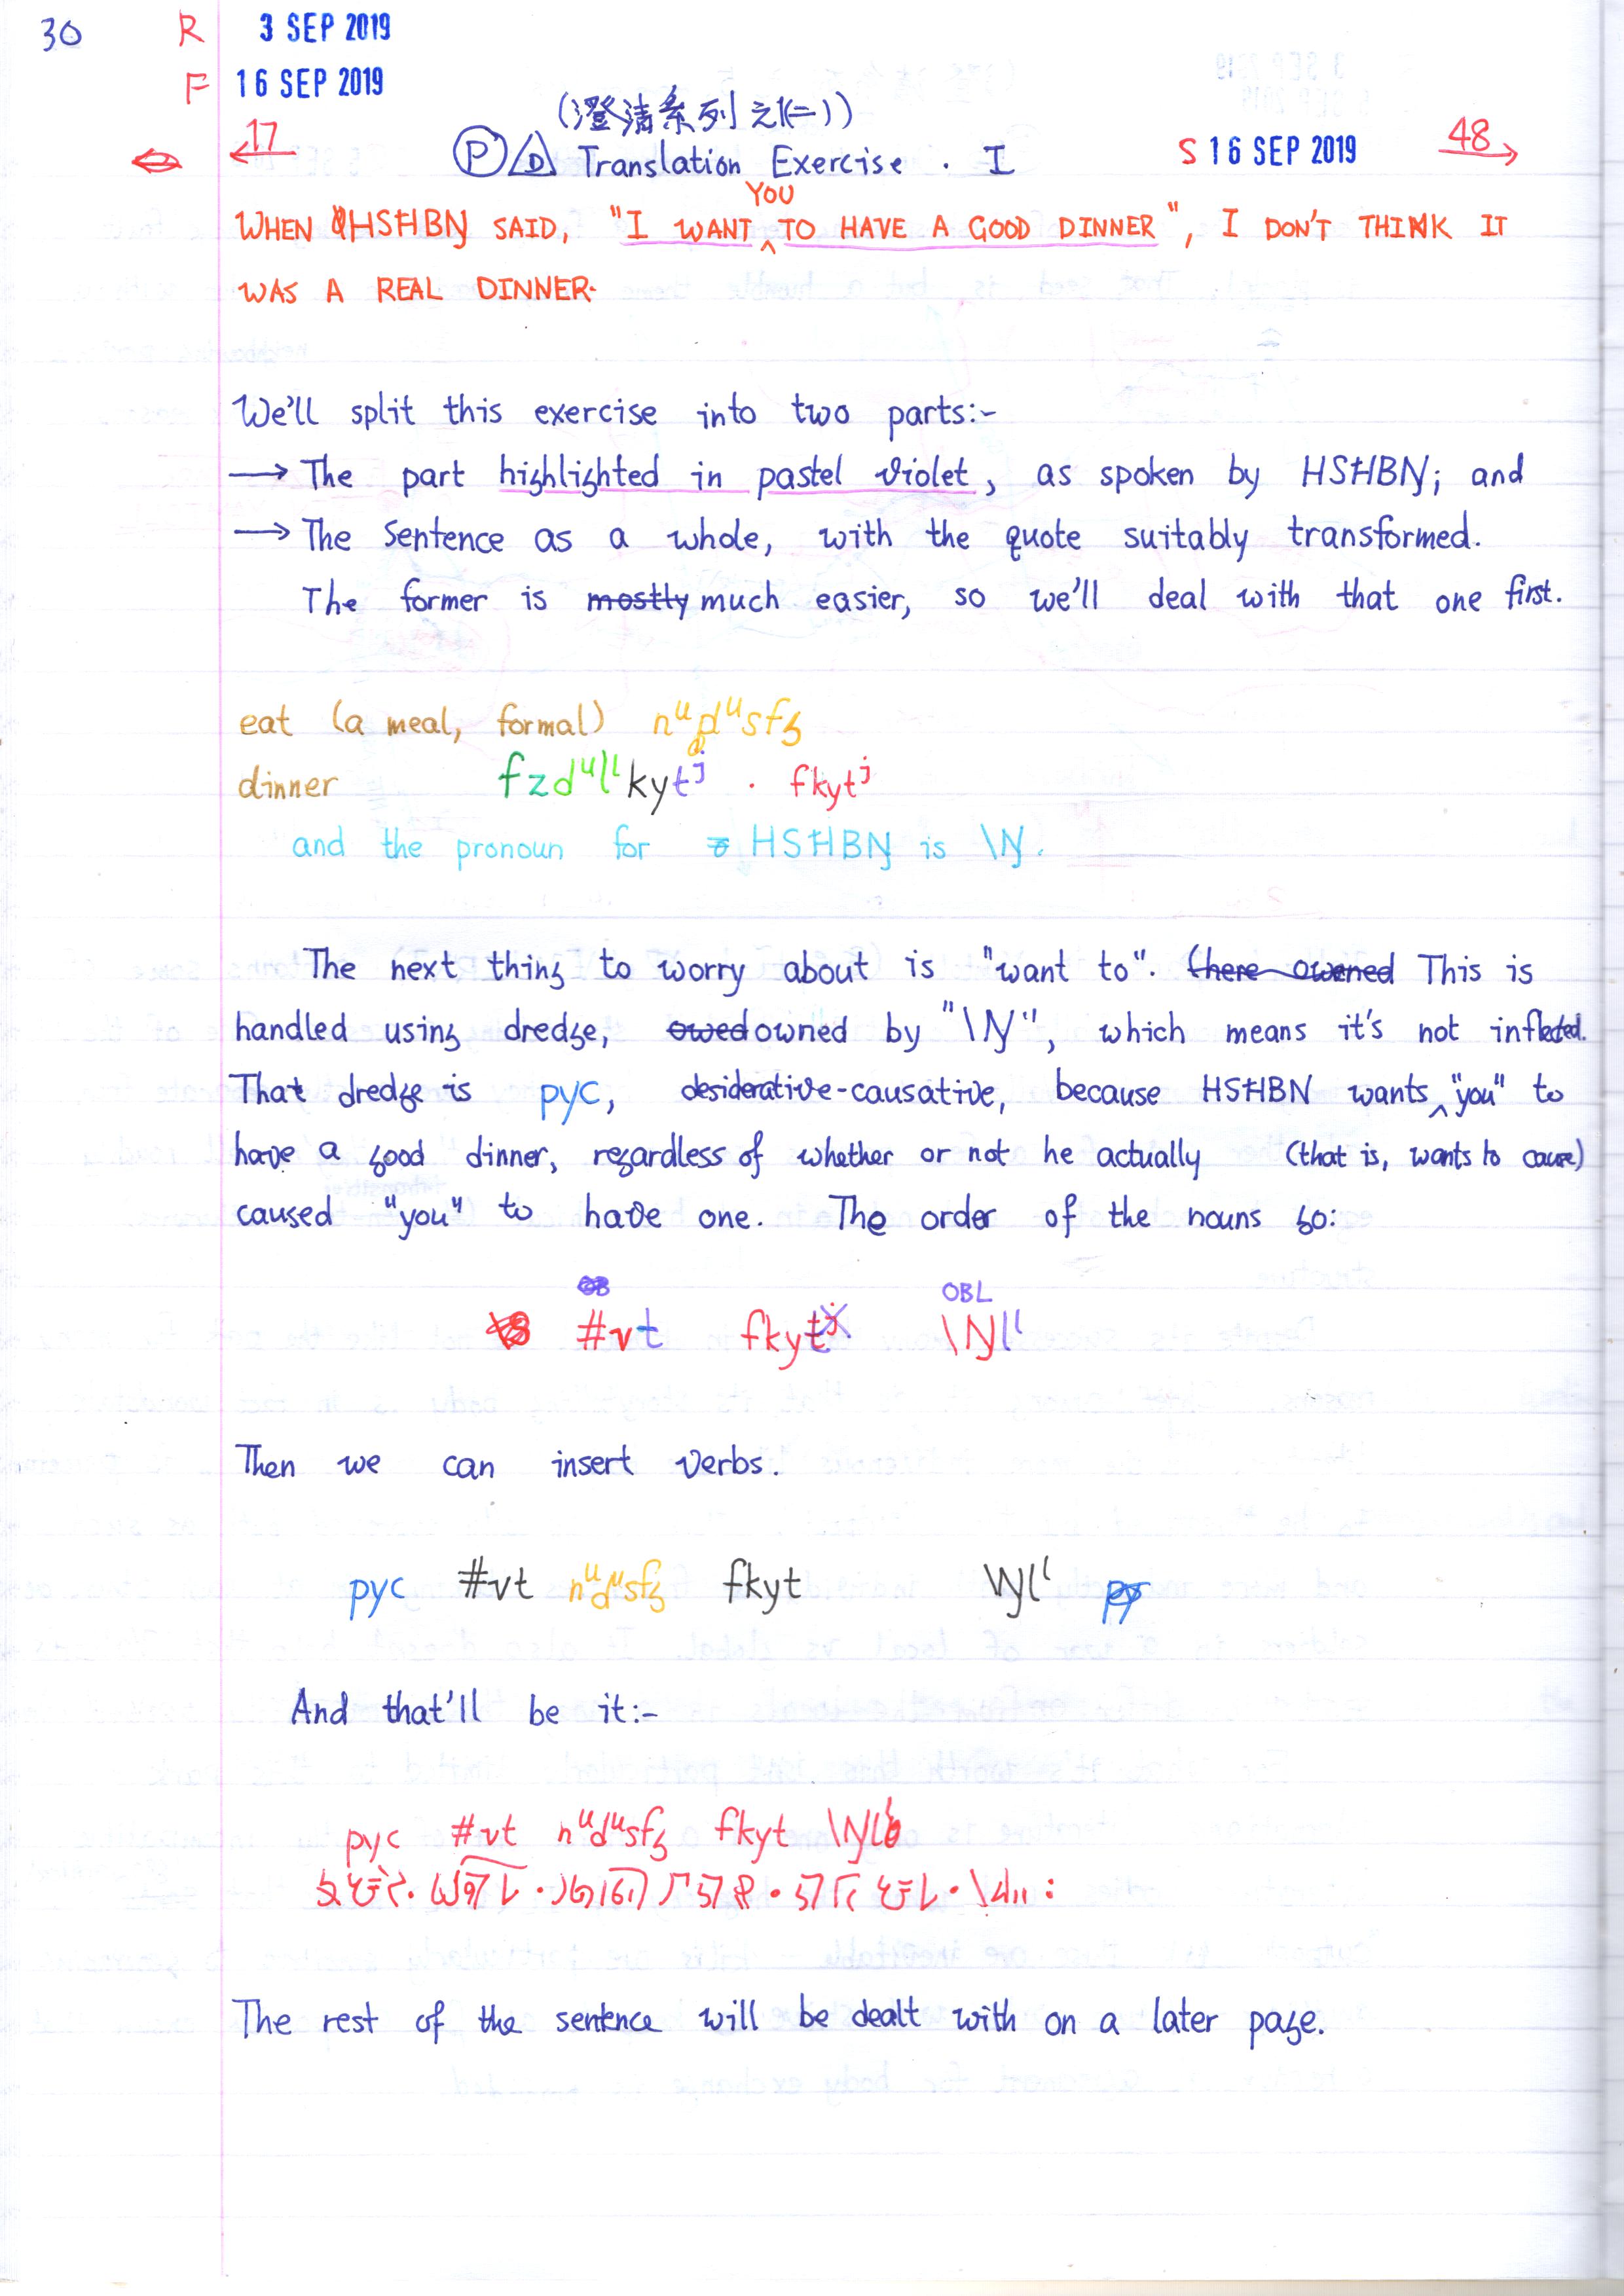 30 R 3 SEP 2019
F 16 SEP 2019
(澄清系列之(二))
17 P D Translation Exercise . I S 16 SEP 2019 48
YOU
WHEN HSĦBŊ SAID, "I WANT ^ TO HAVE A GOOD DINNER", I DON'T THINK IT
WAS A REAL DINNER.
We'll split this exercise into two parts:-
→ The part highlighted in pastel violet, as spoken by HSĦBŊ; and
→ The sentence as a whole, with the quote suitably transformed.
The former is mostly much easier, so we'll deal with that one first.
eat (a meal, formal) nᵘdᵘsfʒ
dinner fzdᵘlˡkytʲ . fkytʲ
and the pronoun for HSĦBŊ is \Ŋ.
The next thing to worry about is "want to". there owened This is
handled using dredge, owed owned by "\Ŋ", which means it's not inflected.
That dredge is pyc, desiderative-causative, because HSĦBN wants ^ "you" to
have a good dinner, regardless of whether or not he actually (that is, wants to cause)
caused "you" to have one. The order of the nouns go:
OB OBL
#vt fkytʲ \Ŋlˡ
Then we can insert verbs.
pyc #vt nᵘdᵘsfʒ fkyt \Ŋlˡ py
And that'll be it:-
pyc #vt nᵘdᵘsfʒ fkyt \Ŋlˡ
The rest of the sentence will be dealt with on a later page.